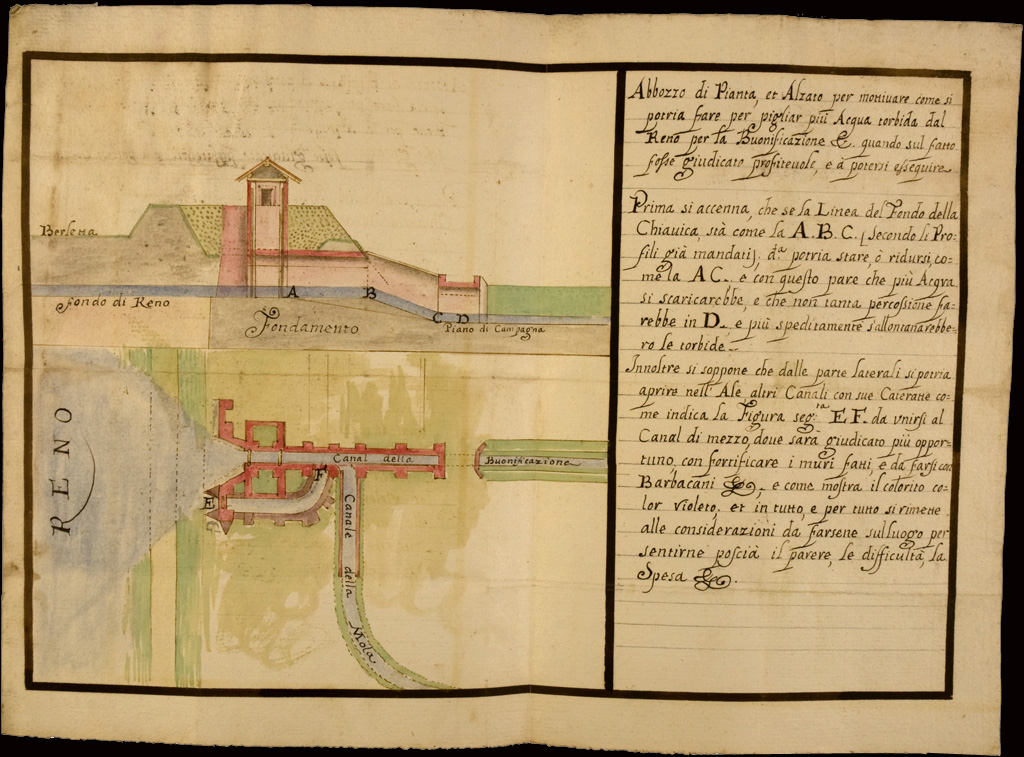 Berletta
Fondo di Reno
A
B
C D
Fondamento
Piano di Campagna
RENO
E
F
Canal della
Buonificazione
Canale della Mola
Abbozzo di Pianta, et Alzato per mottiuare come si
potria fare per pigliar più Acqua torbida dal
Reno per la Buonificazione &. quando sul fatto
fosse giudicato profiteuole, e à potersi essequire
Prima si accenna, che se la Linea del Fondo della
Chiauica, stà come la A. B. C. (secondo li Pro-
fili già mandati), d.ª potria stare, ò ridursi, co-
me la A C. e con questo pare che più Acqua
si scaricarebbe, e che non tanta percossione fa-
rebbe in D., e più speditamente s'allontanarebbe-
ro le torbide.
Innoltre si soppone che dalle parte laterali si potria
aprire nell' Ale, altri Canali con sue Cateratte co-
me indica la Figura seg.ta E F. da vnirsi al
Canal di mezzo, doue sarà giudicato più oppor-
tuno, con fortificare i muri fatti, e da farsi con
Barbacani &, e come mostra il colorito co-
lor violeto. et in tutto, e per tutto si rimette
alle considerazioni da farsene sul luogo per
sentirne poscia il parere, le difficultà, la
Spesa &.